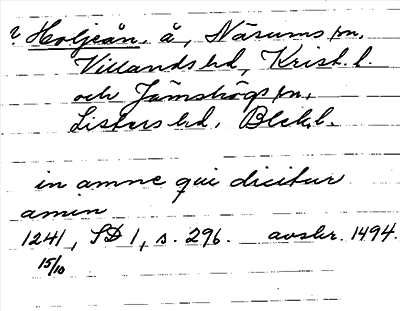 ? Holjeån, å, Näsums sn,
Villands hd, Krist. l.
och Jämshögs sn,
Listers hd, Blek. l.
in amne qui dicitur
amin
1241, SD 1, s. 296. avskr. 1494.
15/10